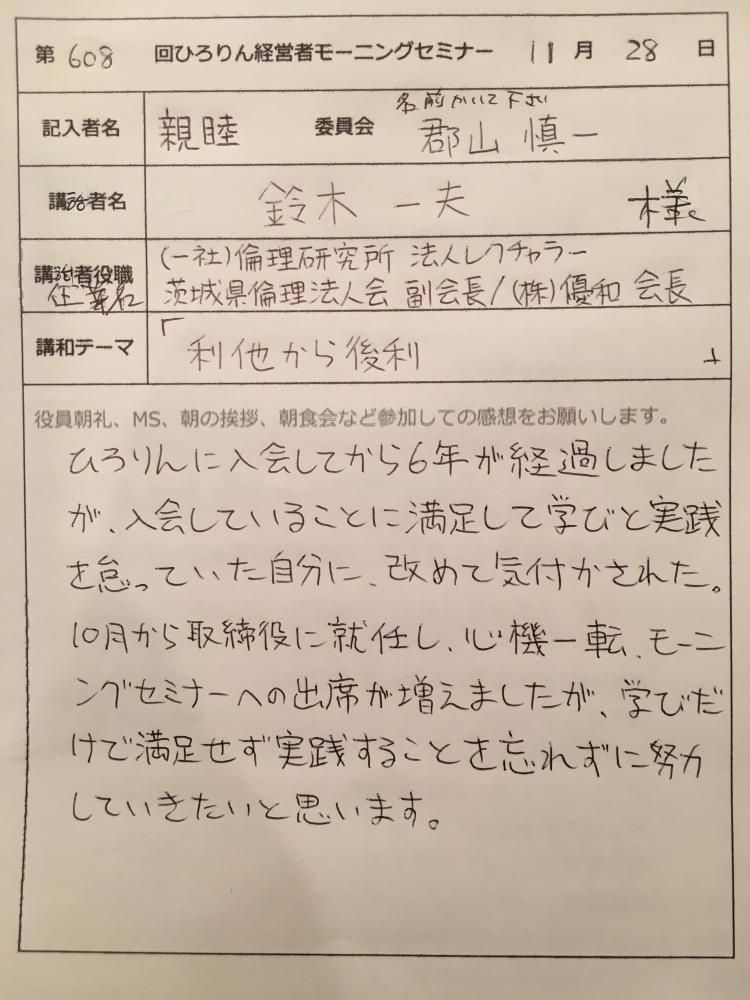 第 608 回ひろりん経営者モーニングセミナー 11 月 28 日
名前かいて下さい
記入者名 親睦 委員会 郡山 慎一
講話者名 鈴木 一夫 様
講話者役職 (一社)倫理研究所 法人レクチャラー
企業名 茨城県倫理法人会 副会長/(株)優和 会長
講和テーマ 「利他から後利」
役員朝礼、MS、朝の挨拶、朝食会など参加しての感想をお願いします。
ひろりんに入会してから6年が経過しました
が、入会していることに満足して学びと実践
を怠っていた自分に、改めて気付かされた。
10月から取締役に就任し、心機一転、モーニ
ングセミナーへの出席が増えましたが、学びだ
けで満足せず実践することを忘れずに努力
していきたいと思います。